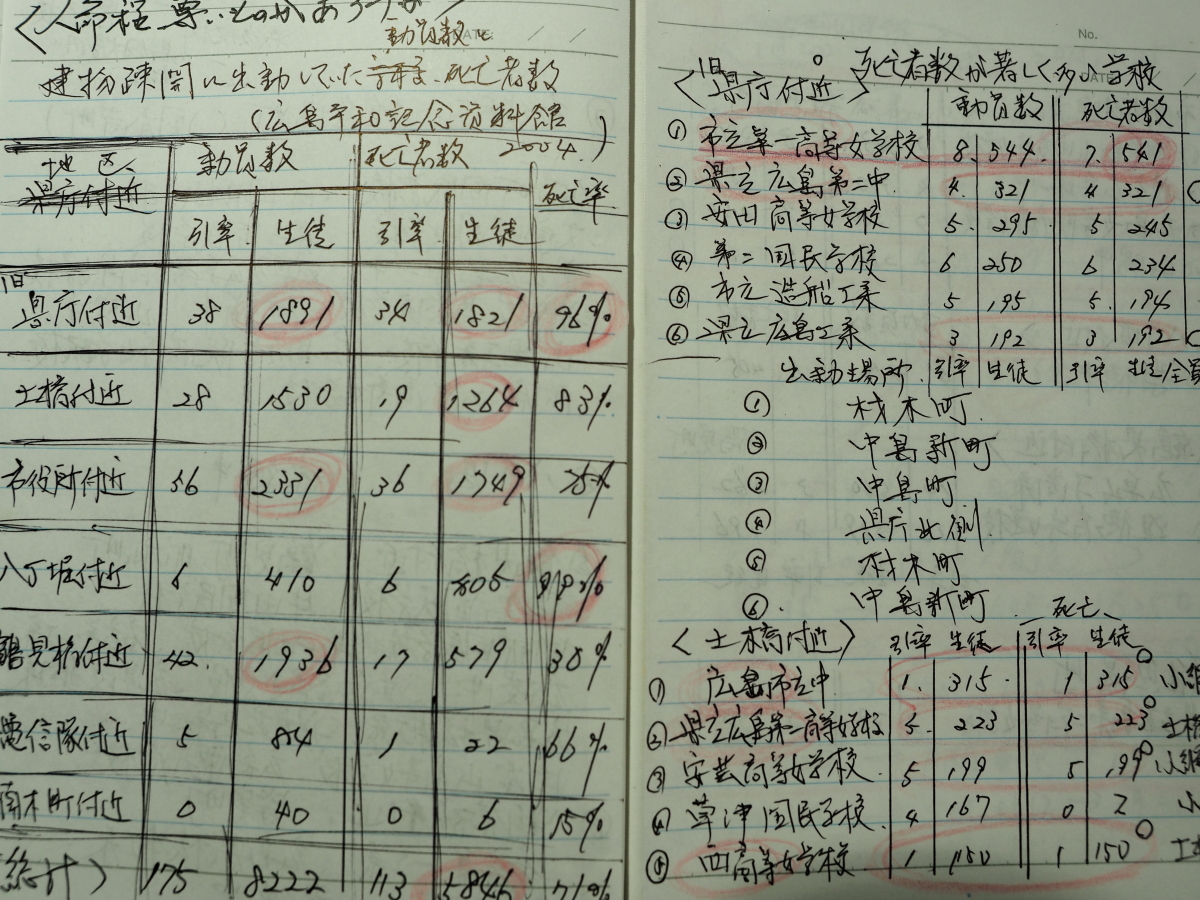 動員数と
建物疎開に出動していた 死亡者数
(広島平和記念資料館
2004.)
地区 動員数 死亡者数 死亡率
県庁付近
引率 生徒 引率 生徒
旧
県庁付近 38 1891 34 1821 96%
土橋付近 28 1530 19 1264 83%
市役所付近 56 2331 36 1749 75%
八丁堀付近 6 410 6 405
鶴見橋付近 42. 1936 17 579 30%
電信隊付近 5 84 1 22
南木町付近 0 40 0 6 15%
(総計) 175 8222 113 5846 71%
No.
DATE
。死亡者数が著しく多い学校
〈旧県庁付近〉
動員数 死亡者数
① 市立第一高等女学校 8. 544. 7. 541
② 県立広島第二中 4 321 4 321
③ 安田高等女学校 5. 295 5 245
④ 第二国民学校 6 250 6 234
⑤ 市立造船工業 5 195 5. 194
⑥ 県立広島工業 3 192 3 192
出動場所 引率 生徒 引率 生徒 全員
① 材木町
② 中島新町
③ 中島町
④ 県庁北側
⑤ 材木町
⑥. 中島新町
死亡
〈土橋付近〉 引率 生徒 引率 生徒
① 広島市立中 1. 315. 1 315
② 県立広島第一高等女学校 5. 223 5 223 土橋
③ 安芸高等女学校 5 199 5 199
④ 草津国民学校 4 167 0 2
⑤ 西高等女学校 1 150 1 150